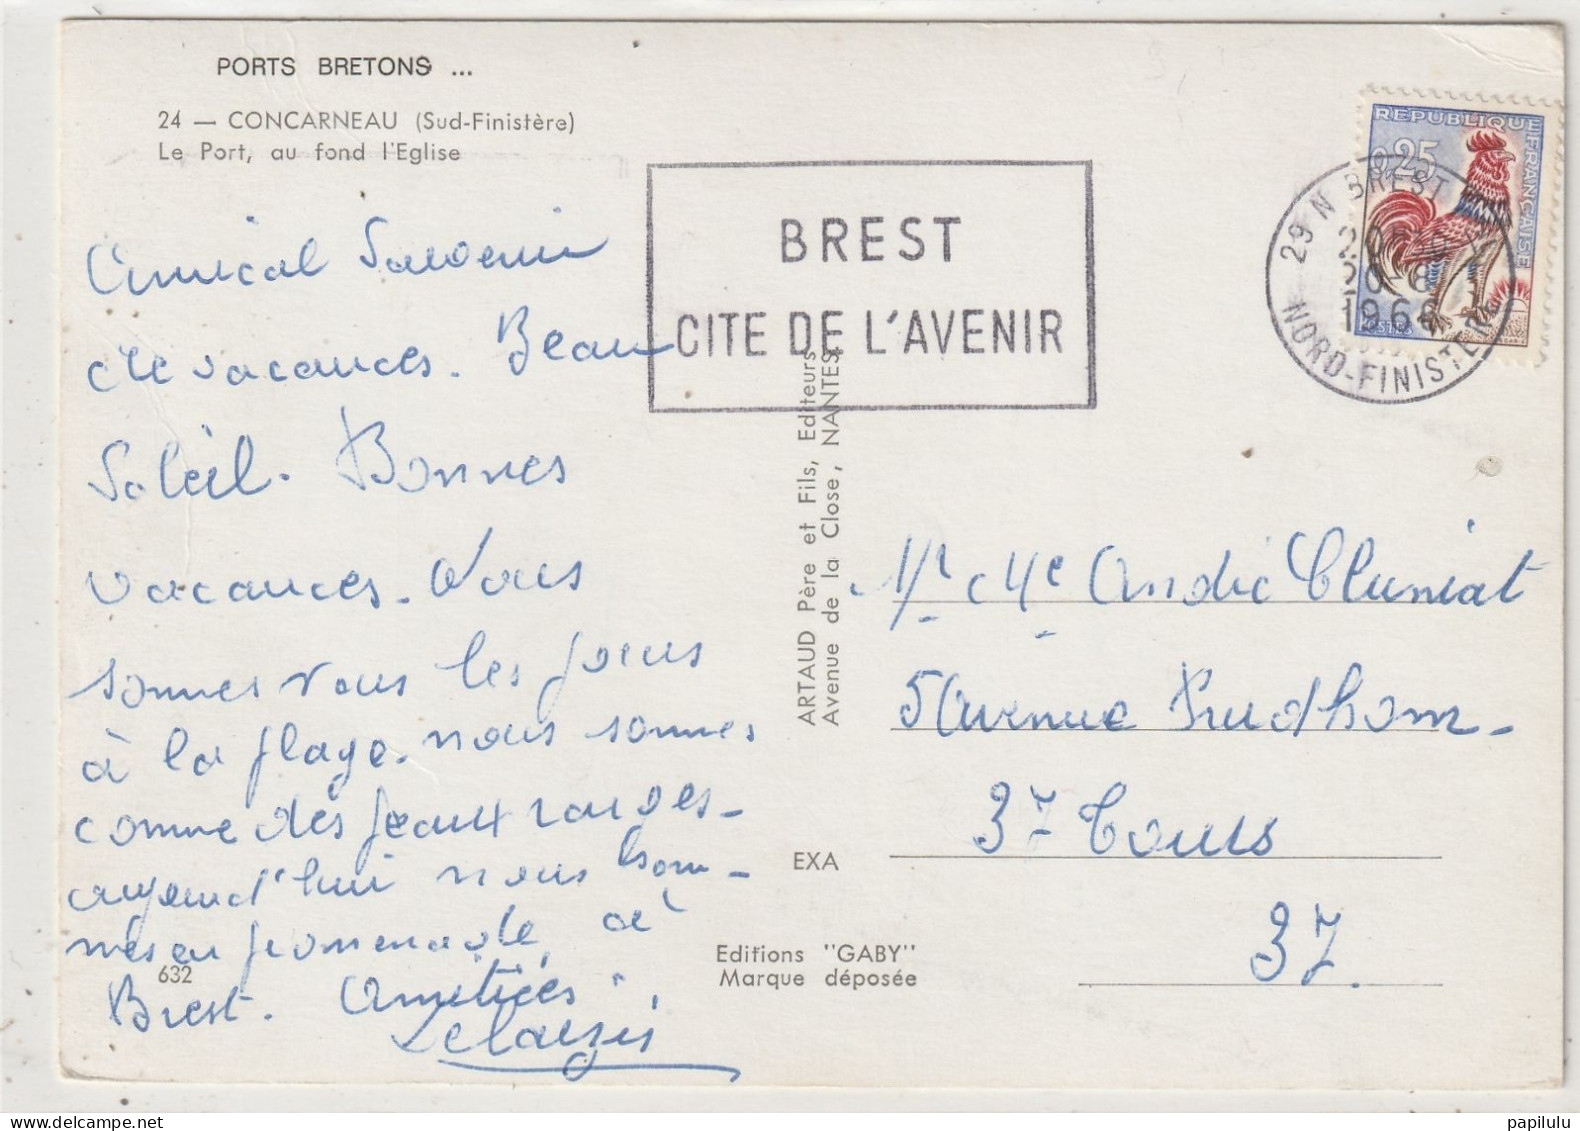 PORTS BRETONS ...
24 — CONCARNEAU (Sud-Finistère)
Le Port, au fond l'Eglise
Amical Souvenir
de vacances. Beau
Soleil. Bonnes
vacances. Nous
sommes tous les jours
à la plage. nous sommes
comme des peaux rouges-
aujourd'hui nous som-
mes en promenade, à
Brest. Amitiés.
632
BREST
CITE DE L'AVENIR
REPUBLIQUE FRANÇAISE
0,25
POSTES
29 N BREST
20-8
196
NORD-FINISTERE
ARTAUD Père et Fils, Editeurs
Avenue de la Close, NANTES
EXA
Editions "GABY"
Marque déposée
Mr Me André Cluniat
5 Avenue Prudhom-
37 Tours
37.
papilulu
delcampe.net